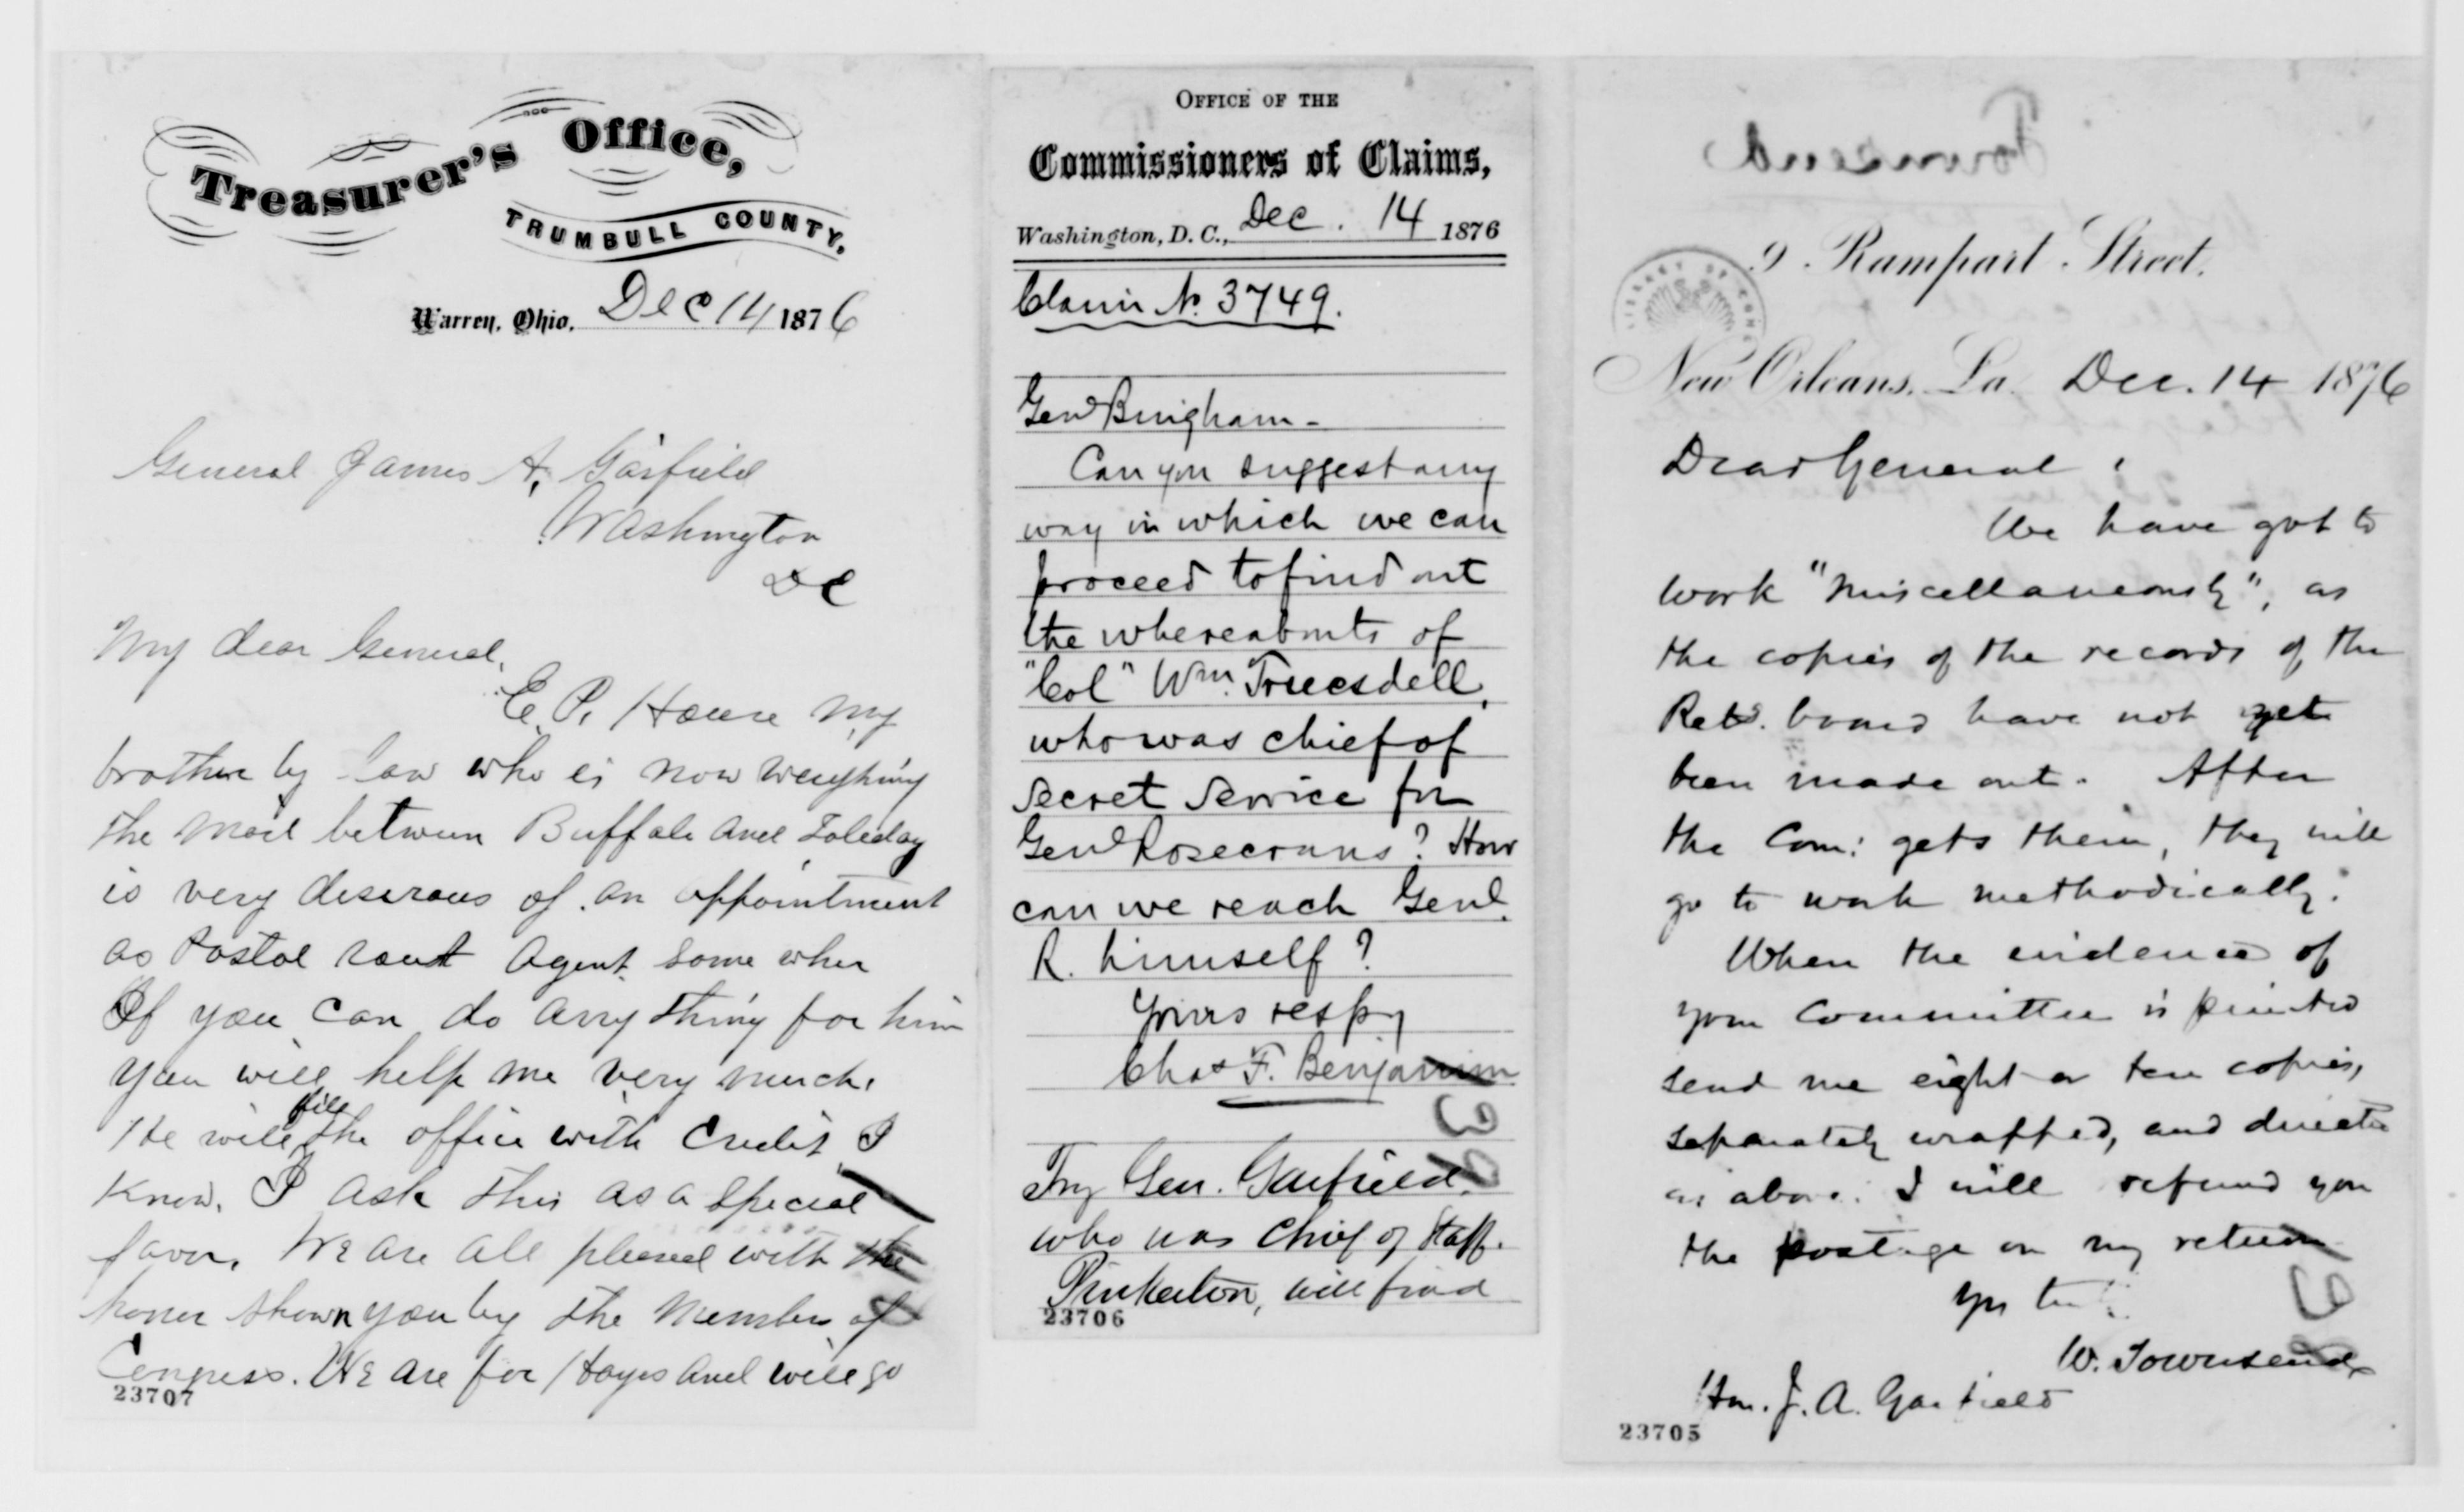 Treasurer's Office,
TRUMBULL COUNTY,
Warren, Ohio, Dec 14 1876
General James A, Garfield
Washington
DC
My dear General,
E. P. House my
brother by law who is now weighing
the mail between Buffalo and Toledo
is very desirous of an appointment
as Postal rout Agent some wher
If you can do any thing for him
you will help me very much.
He will fill the office with Credit I
Know. I ask this as a special
favor. We are all pleased with the
honor shown you by the Members of
Congress. We are for Hayes and will go
23707
OFFICE OF THE
Commissioners of Claims,
Washington, D. C., Dec. 14 1876
Claim No. 3749.
Genl Bingham -
Can you suggest any
way in which we can
proceed to find out
the whereabouts of
"Col" Wm. Truesdell,
who was chief of
secret service for
Genl Rosecrans? How
can we reach Genl.
R. himself?
Yours respy
Chas F. Benjamin
Try Gen. Garfield.
who was Chief of Staff.
Pinkerton, will find
23706
Townsend
9. Rampart Street.
New Orleans, La. Dec. 14 1876
Dear General:
We have got to
work "miscellaneously", as
the copies of the records of the
board have not yet
been made out. After
the Com: gets them, they will
go to work methodically.
When the evidence of
your Committee is printed
send me eight or ten copies,
separately wrapped, and directed
as above. I will refund you
the postage on my return
Yrs
W. Townsend
Hon. J. A. Garfield
23705